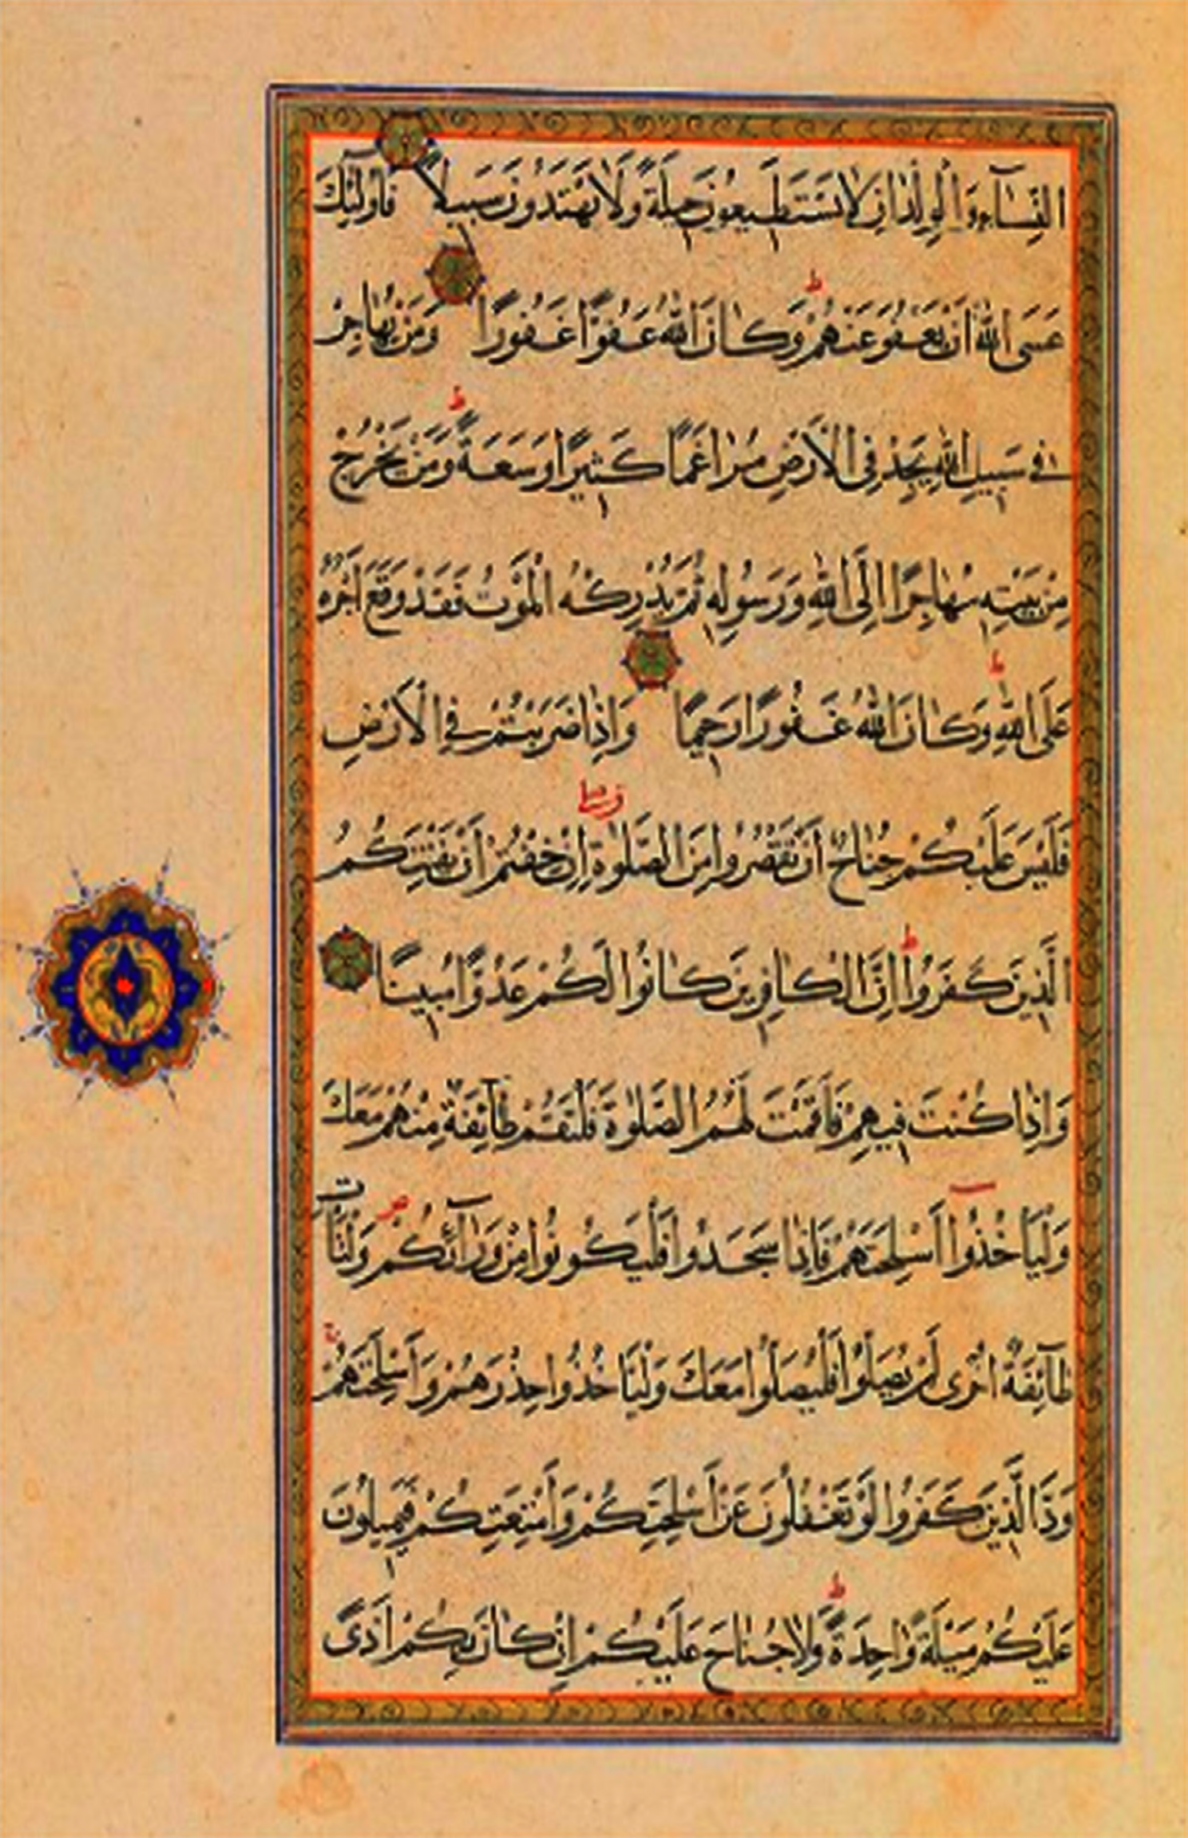 النِّسَآءِ وَالْوِلْدَانِ لَا يَسْتَطِيعُونَ حِيلَةً وَلَا يَهْتَدُونَ سَبِيلًا فَأُولَٰئِكَ
عَسَى اللَّهُ أَنْ يَعْفُوَ عَنْهُمْ ط وَكَانَ اللَّهُ عَفُوًّا غَفُورًا وَمَنْ يُهَاجِرْ
فِي سَبِيلِ اللَّهِ يَجِدْ فِي الْأَرْضِ مُرَاغَمًا كَثِيرًا وَسَعَةً ط وَمَنْ يَخْرُجْ
مِنْ بَيْتِهِ مُهَاجِرًا إِلَى اللَّهِ وَرَسُولِهِ ثُمَّ يُدْرِكْهُ الْمَوْتُ فَقَدْ وَقَعَ أَجْرُهُ
عَلَى اللَّهِ ط وَكَانَ اللَّهُ غَفُورًا رَحِيمًا وَإِذَا ضَرَبْتُمْ فِي الْأَرْضِ
فَلَيْسَ عَلَيْكُمْ جُنَاحٌ أَنْ تَقْصُرُوا مِنَ الصَّلَوٰةِ إِنْ خِفْتُمْ أَنْ يَفْتِنَكُمُ
الَّذِينَ كَفَرُوا ط إِنَّ الْكَافِرِينَ كَانُوا لَكُمْ عَدُوًّا مُبِينًا
وَإِذَا كُنْتَ فِيهِمْ فَأَقَمْتَ لَهُمُ الصَّلَوٰةَ فَلْتَقُمْ طَآئِفَةٌ مِنْهُمْ مَعَكَ
وَلْيَأْخُذُوا أَسْلِحَتَهُمْ فَإِذَا سَجَدُوا فَلْيَكُونُوا مِنْ وَرَآئِكُمْ ص وَلْتَأْتِ
طَآئِفَةٌ أُخْرَى لَمْ يُصَلُّوا فَلْيُصَلُّوا مَعَكَ وَلْيَأْخُذُوا حِذْرَهُمْ وَأَسْلِحَتَهُمْ ج
وَدَّ الَّذِينَ كَفَرُوا لَوْ تَغْفُلُونَ عَنْ أَسْلِحَتِكُمْ وَأَمْتِعَتِكُمْ فَيَمِيلُونَ
عَلَيْكُمْ مَيْلَةً وَاحِدَةً ط وَلَا جُنَاحَ عَلَيْكُمْ إِنْ كَانَ بِكُمْ أَذًى